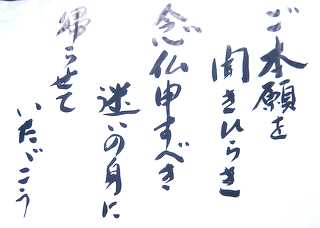 ご本願を
聞きひらき
念仏申すべき
迷いの身に
帰らせて
いただこう